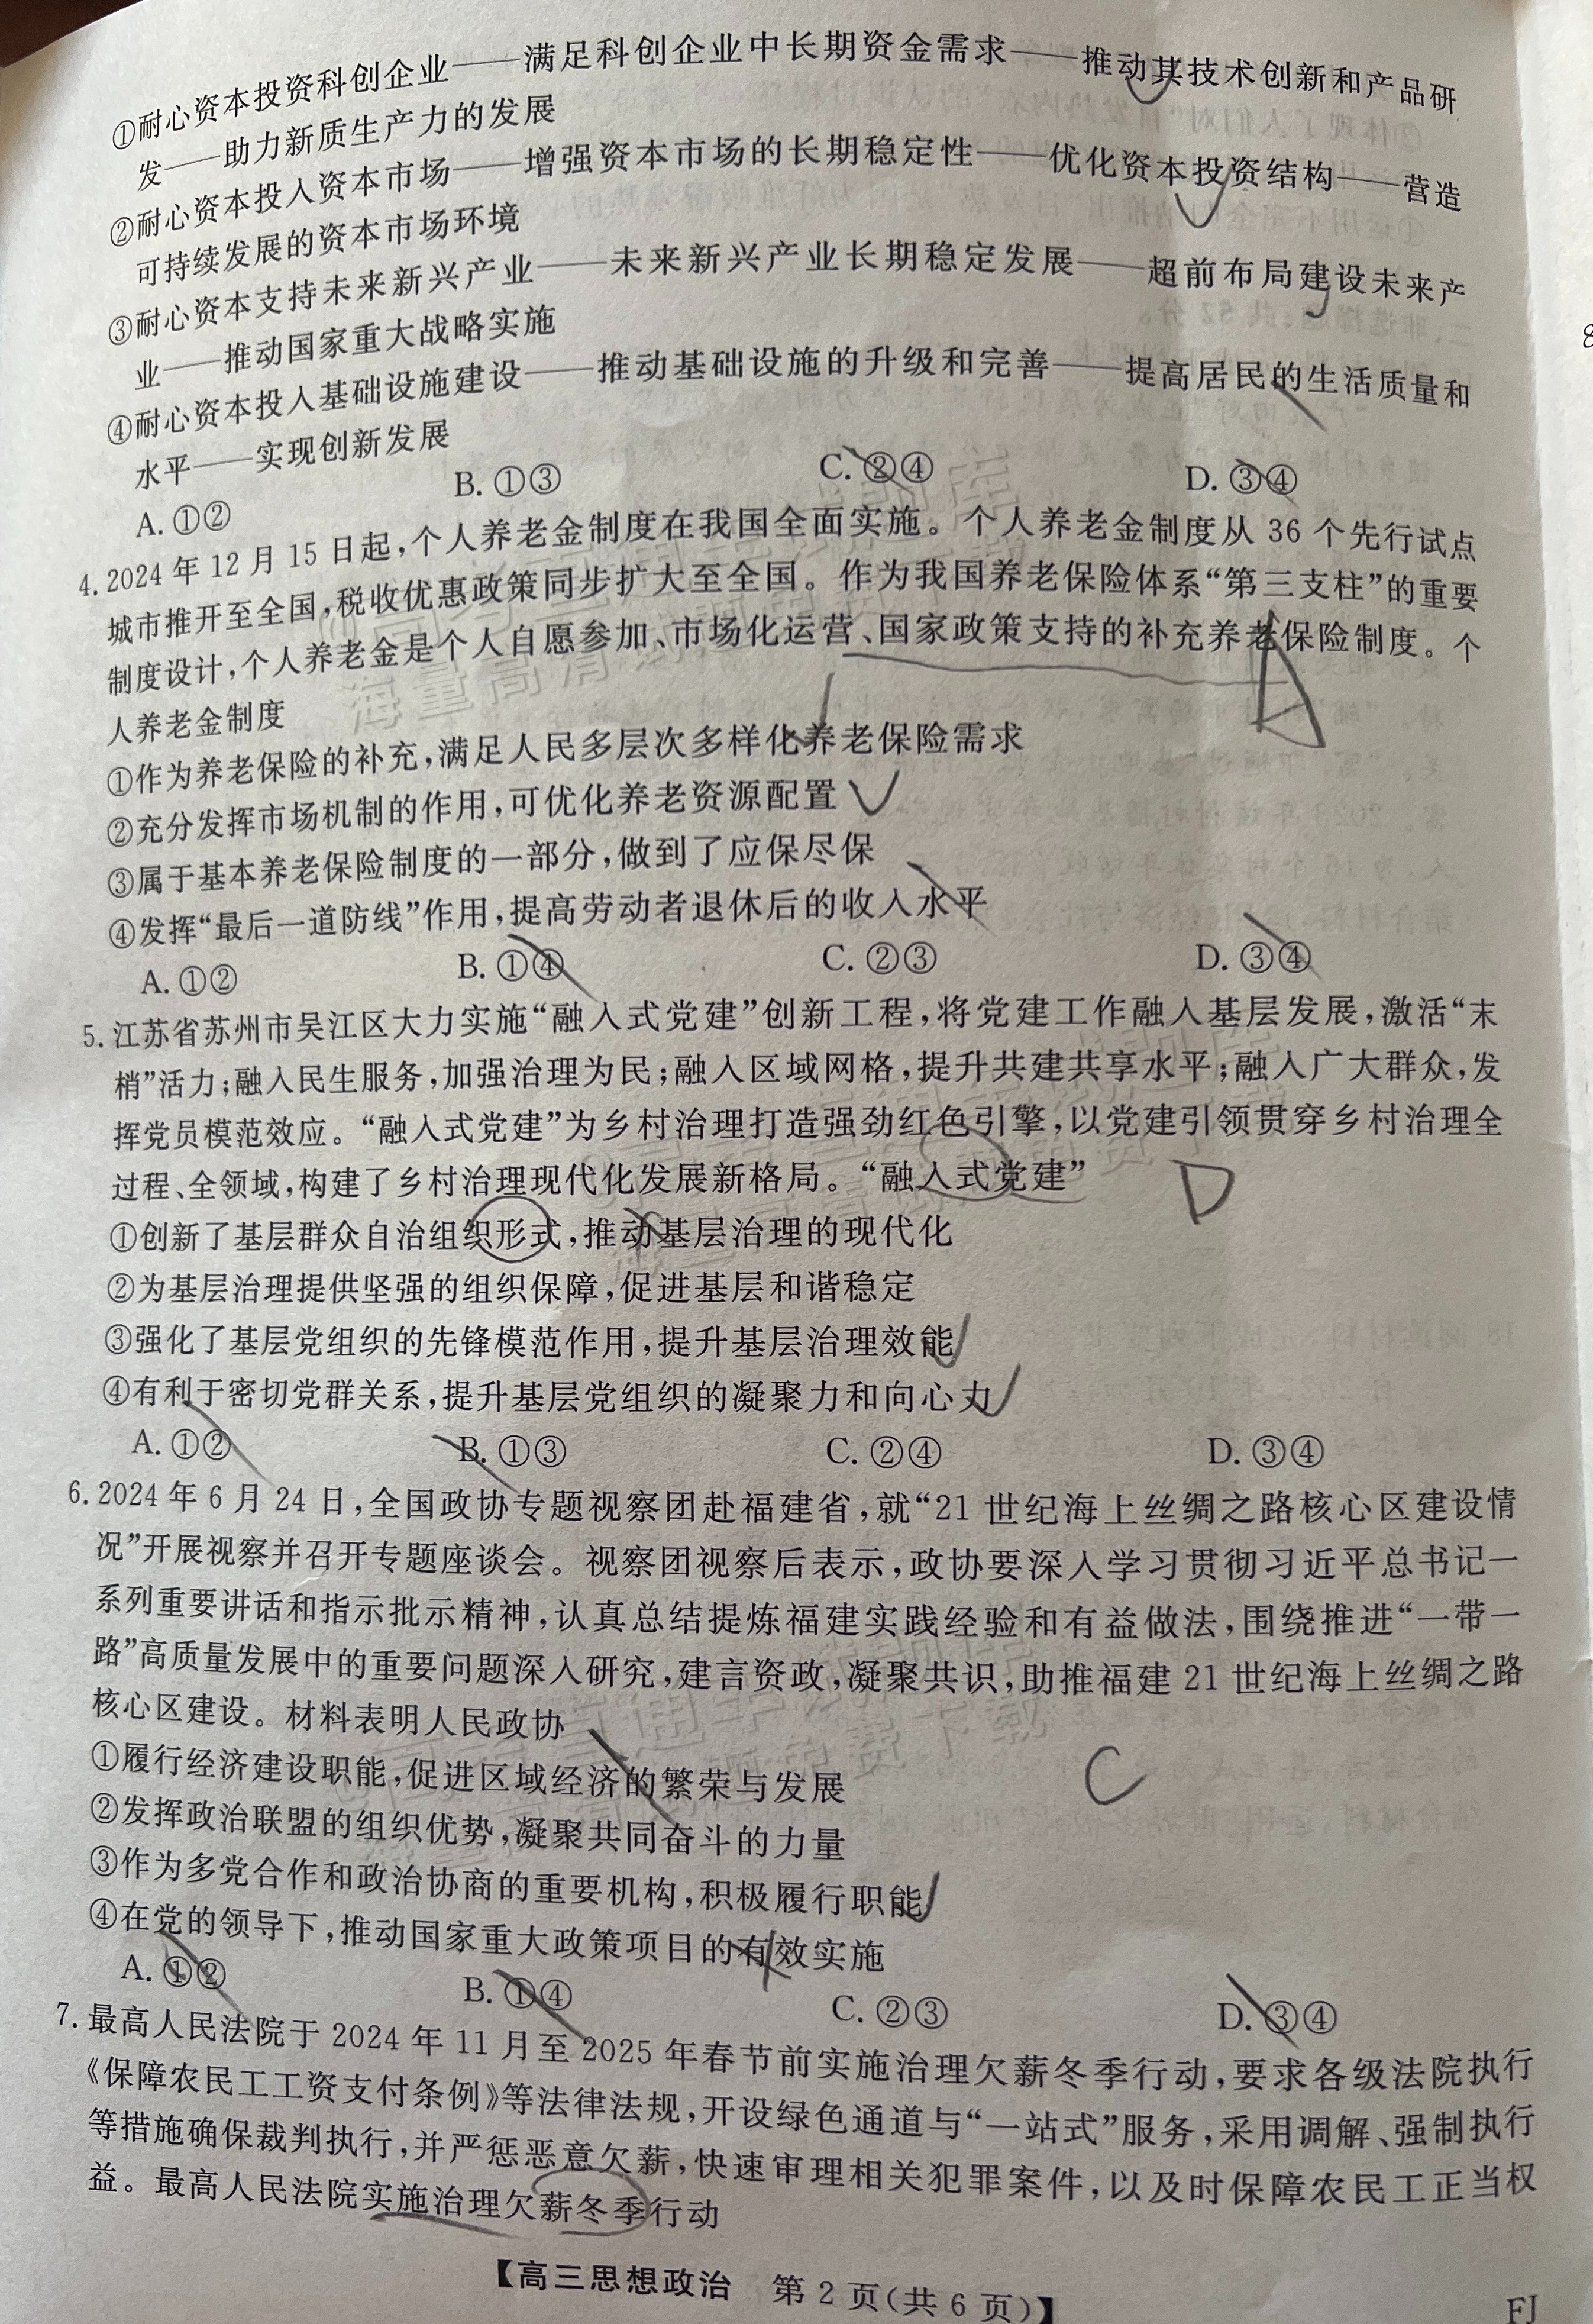 ①耐心资本投资科创企业——满足科创企业中长期资金需求——推动其技术创新和产品研
发——助力新质生产力的发展
②耐心资本投入资本市场——增强资本市场的长期稳定性——优化资本投资结构——营造
可持续发展的资本市场环境
③耐心资本支持未来新兴产业——未来新兴产业长期稳定发展——超前布局建设未来产
业——推动国家重大战略实施
④耐心资本投入基础设施建设——推动基础设施的升级和完善——提高居民的生活质量和
水平——实现创新发展
A. ①② B. ①③ C. ②④ D. ③④
4. 2024 年 12 月 15 日起,个人养老金制度在我国全面实施。个人养老金制度从 36 个先行试点
城市推开至全国,税收优惠政策同步扩大至全国。作为我国养老保险体系“第三支柱”的重要
制度设计,个人养老金是个人自愿参加、市场化运营、国家政策支持的补充养老保险制度。个
人养老金制度
A
①作为养老保险的补充,满足人民多层次多样化养老保险需求
②充分发挥市场机制的作用,可优化养老资源配置
③属于基本养老保险制度的一部分,做到了应保尽保
④发挥“最后一道防线”作用,提高劳动者退休后的收入水平
A. ①② B. ①④ C. ②③ D. ③④
5. 江苏省苏州市吴江区大力实施“融入式党建”创新工程,将党建工作融入基层发展,激活“末
梢”活力;融入民生服务,加强治理为民;融入区域网格,提升共建共享水平;融入广大群众,发
挥党员模范效应。“融入式党建”为乡村治理打造强劲红色引擎,以党建引领贯穿乡村治理全
过程、全领域,构建了乡村治理现代化发展新格局。“融入式党建”
D
①创新了基层群众自治组织形式,推动基层治理的现代化
②为基层治理提供坚强的组织保障,促进基层和谐稳定
③强化了基层党组织的先锋模范作用,提升基层治理效能
④有利于密切党群关系,提升基层党组织的凝聚力和向心力
A. ①② B. ①③ C. ②④ D. ③④
6. 2024 年 6 月 24 日,全国政协专题视察团赴福建省,就“21 世纪海上丝绸之路核心区建设情
况”开展视察并召开专题座谈会。视察团视察后表示,政协要深入学习贯彻习近平总书记一
系列重要讲话和指示批示精神,认真总结提炼福建实践经验和有益做法,围绕推进“一带一
路”高质量发展中的重要问题深入研究,建言资政,凝聚共识,助推福建 21 世纪海上丝绸之路
核心区建设。材料表明人民政协
①履行经济建设职能,促进区域经济的繁荣与发展
C
②发挥政治联盟的组织优势,凝聚共同奋斗的力量
③作为多党合作和政治协商的重要机构,积极履行职能
④在党的领导下,推动国家重大政策项目的有效实施
A. ①② B. ①④ C. ②③ D. ③④
7. 最高人民法院于 2024 年 11 月至 2025 年春节前实施治理欠薪冬季行动,要求各级法院执行
《保障农民工工资支付条例》等法律法规,开设绿色通道与“一站式”服务,采用调解、强制执行
等措施确保裁判执行,并严惩恶意欠薪,快速审理相关犯罪案件,以及时保障农民工正当权
益。最高人民法院实施治理欠薪冬季行动
【高三思想政治 第 2 页(共 6 页)】
FJ